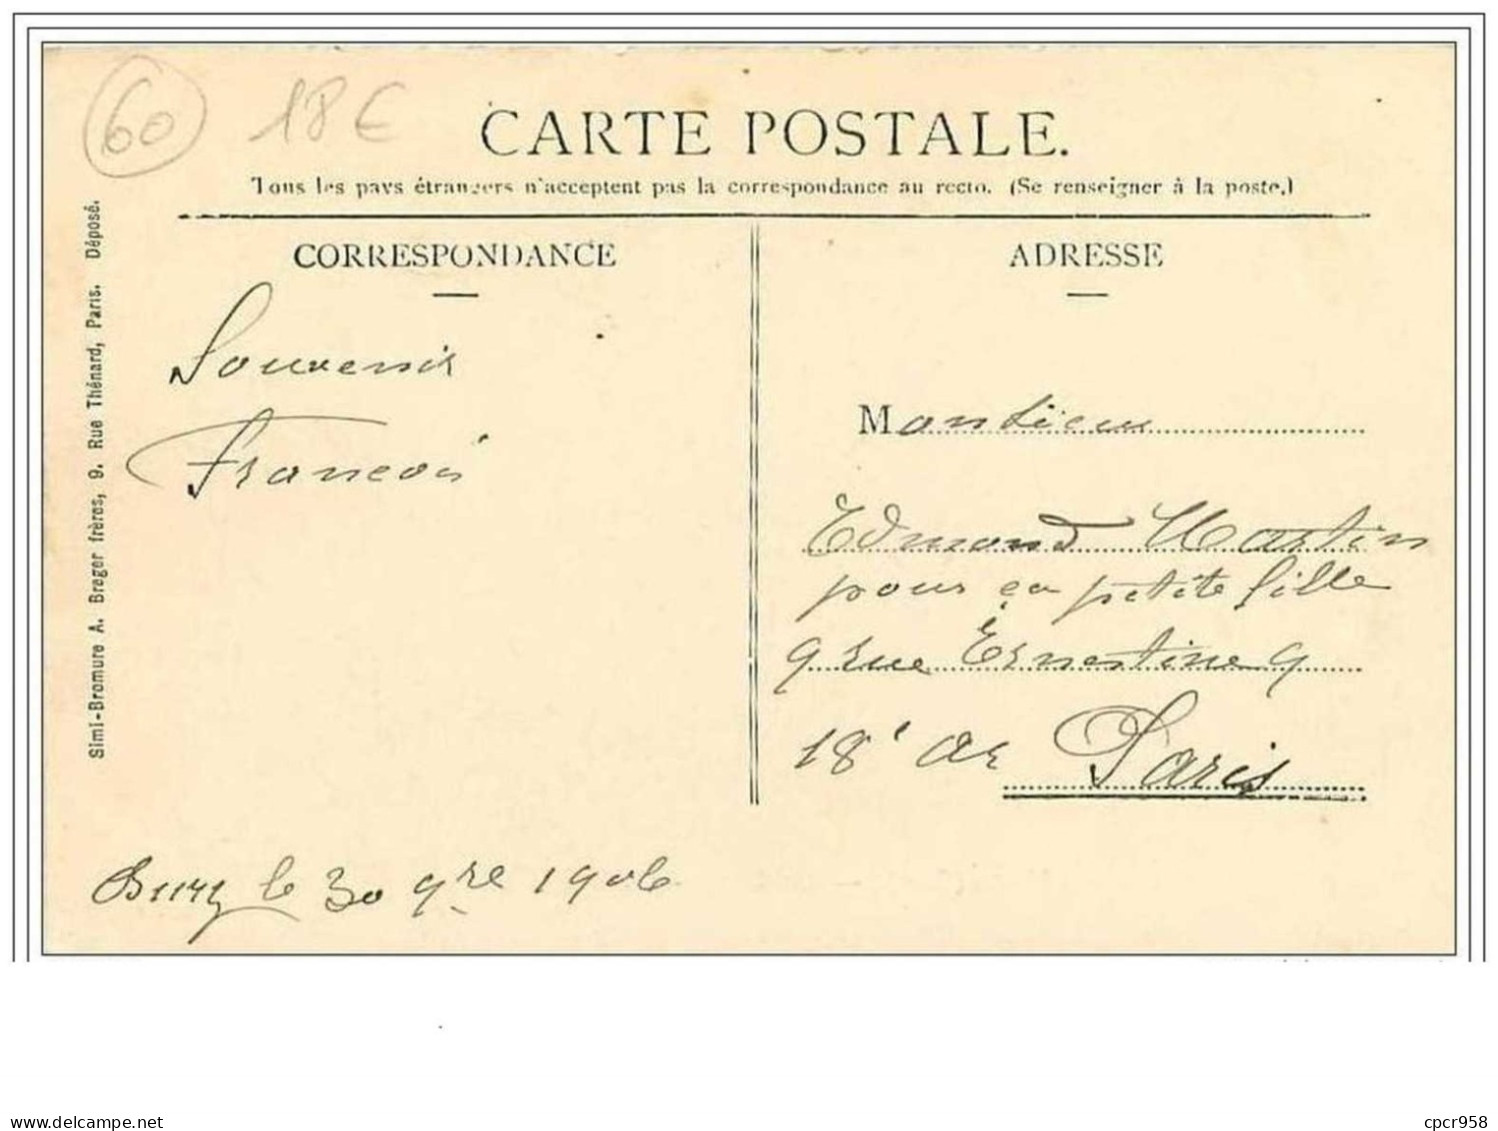 60 18 €
CARTE POSTALE.
Tous les pays étrangers n'acceptent pas la correspondance au recto. (Se renseigner à la poste.)
Simi-Bromure A. Breger frères, 9. Rue Thénard, Paris. Déposé.
CORRESPONDANCE
Souvenir
Francois
Bury le 30 9re 1906
ADRESSE
Monsieur
Edmond Martin
pour ça petite fille
9 rue Ernestine 9
18e ar Paris
www.delcampe.net
cpcr958